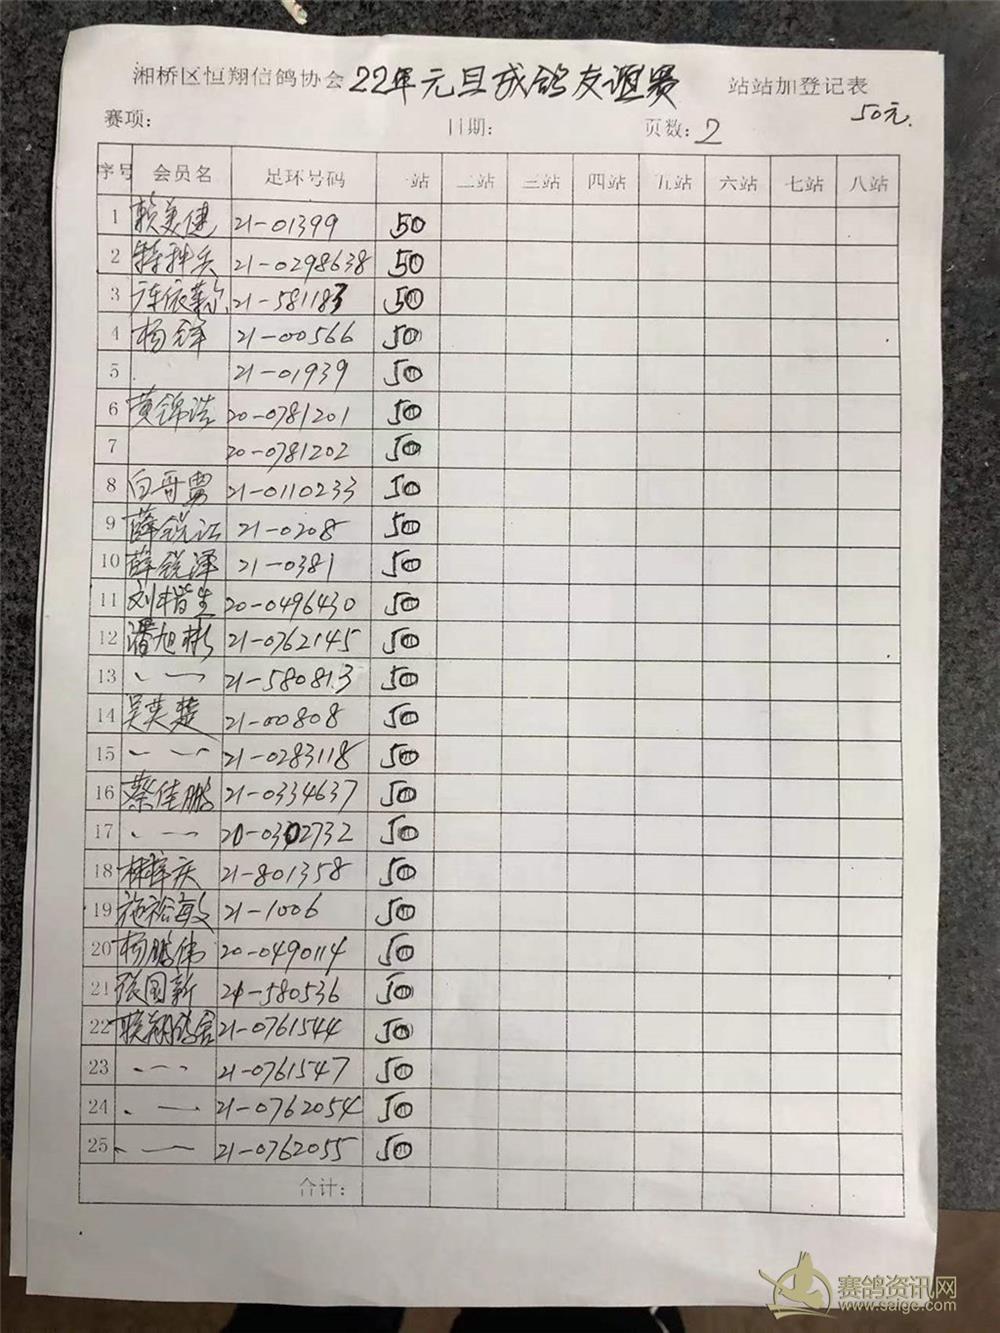 湘桥区恒翔信鸽协会 22年元旦成鸽友谊赛 站站加登记表
50元.
赛项: 日期: 页数: 2
序号 会员名 足环号码 一站 二站 三站 四站 五站 六站 七站 八站
1 赖美健 21-01399 50
2 特种兵 21-0298638 50
3 21-581183 50
4 杨锋 21-00566 50
5 21-01939 50
6 黄锦浩 20-0781201 50
7 20-0781202 50
8 白哥男 21-0110233 50
9 薛锐江 21-0208 50
10 薛锐泽 21-0381 50
11 刘楷生 20-0496430 50
12 潘旭彬 21-0762145 50
13 21-580813 50
14 吴英楚 21-00808 50
15 21-0283118 50
16 蔡佳鹏 21-0334637 50
17 20-0302732 50
18 林梓庆 21-801358 50
19 施裕敏 21-1006 50
20 杨鹏伟 20-0490114 50
21 张国新 21-580536 50
22 联翔鸽舍 21-0761544 50
23 21-0761547 50
24 21-0762054 50
25 21-0762055 50
合计:
赛鸽资讯网
www.saige.com